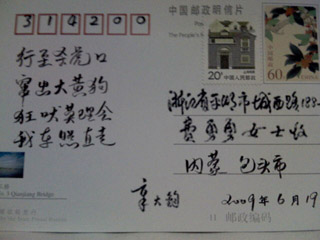 314200
中国邮政明信片
行至杀虎口
窜出大黄狗
狂吠莫理会
我车照直走
20分 中国人民邮政
中国邮政
60
浙江省平湖市城西路
费勇勇女士收
内蒙 包头市
章大钧 2009年6月19
Qianjiang Bridge
邮政编码